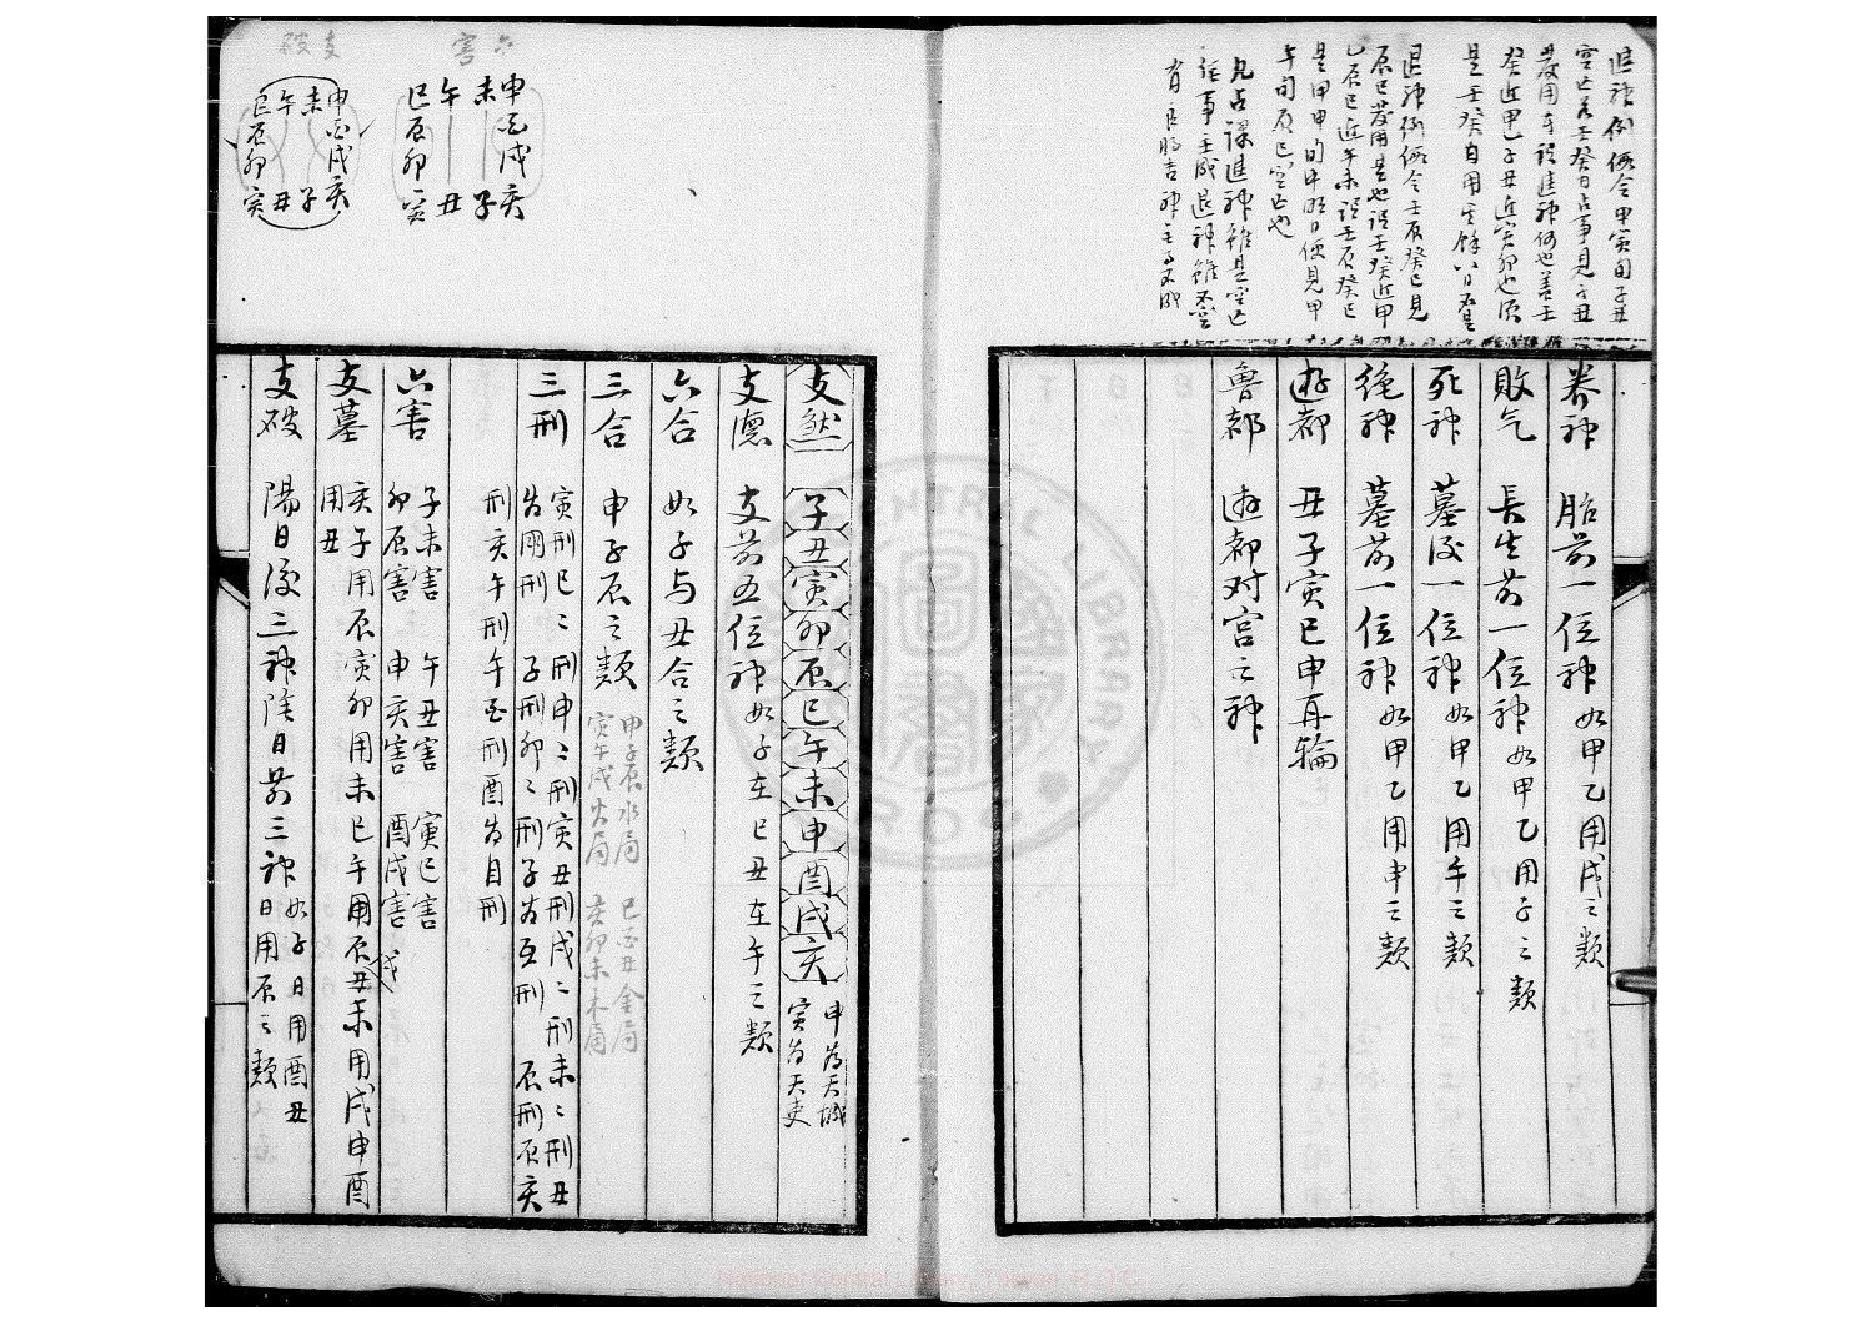 進神例假令甲寅旬子丑
空亡若壬癸日占事見子丑
發用年說進神何也盖壬
癸近甲子丑近寅卯也須
是壬癸自用其餘八日
退神例假令壬辰癸巳見
辰巳發用是也說壬癸近甲
辰巳近午未說壬辰癸巳
是甲申旬中明日便見甲
午旬辰巳空亡也
凡占課進神雖是空亡
任事主成退神雖不空
養神 胎前一位神如甲乙用戌之類
敗气 長生前一位神如甲乙用子之類
死神 墓後一位神如甲乙用午之類
絶神 墓前一位神如甲乙用申之類
遊都 丑子寅巳申再輪
魯都 遊都对宫之神
六害
申酉戌亥
未 子
午 丑
巳辰卯寅
支破
申酉戌亥
未 子
午 丑
巳辰卯寅
支煞 子丑寅卯辰巳午未申酉戌亥
申為天城
寅為天吏
支德 支前五位神如子在巳丑在午之類
六合 如子与丑合之類
三合 申子辰之類
申子辰水局 巳酉丑金局
寅午戌火局 亥卯未木局
三刑 寅刑巳二刑申二刑寅丑刑戌二刑未二刑丑
為朋刑 子刑卯二刑子為互刑 辰刑辰亥
刑亥午刑午酉刑酉為自刑
六害 子未害 午丑害 寅巳害
卯辰害 申亥害 酉戌害
支墓 亥子用辰寅卯用未巳午用戌辰丑未用戌申酉
用丑
支破 陽日後三神陰日前三神如子日用酉丑
日用辰之類